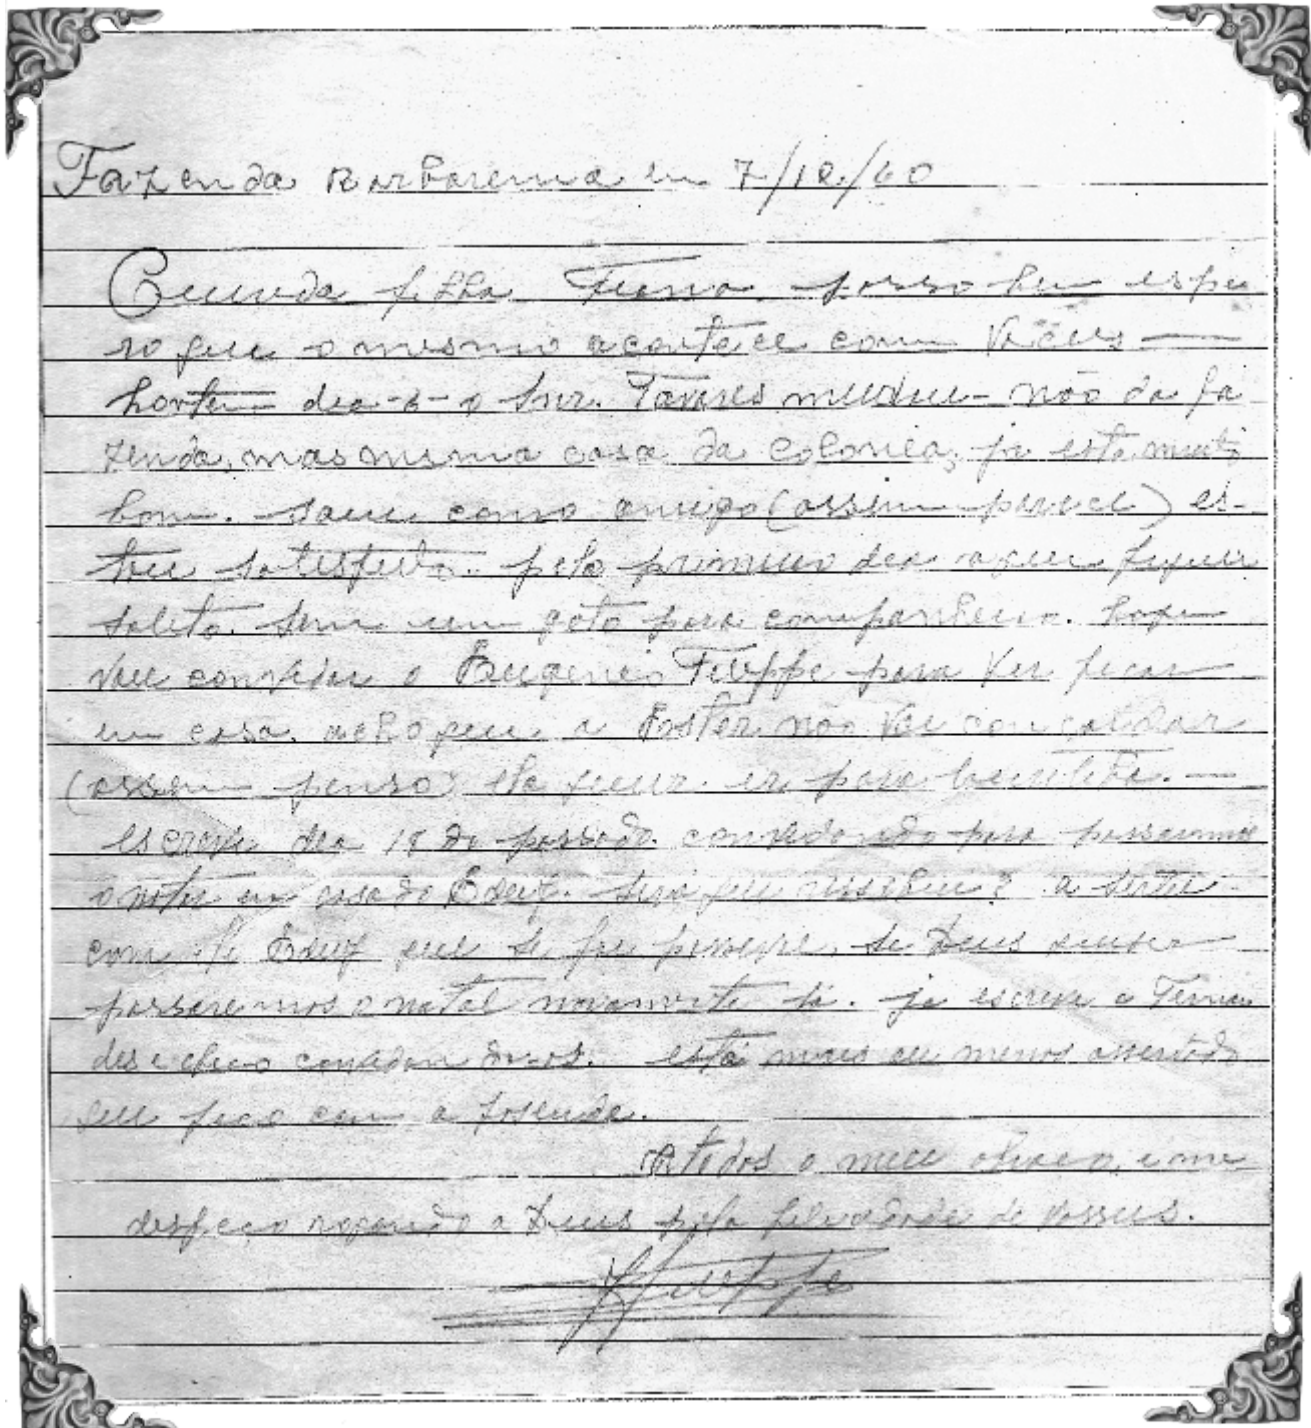 Fazenda Barbarena em 7/12/60
Querida filha passo bem espe
ro que o mesmo acontece com Voceis —
hontem dia -6- o Snr. Tavares mudou- não da fa
zenda, mas mesma casa da Colonia, ja esta muito
bom. saiu como amigo (assim parece) es-
tou satisfeito. pelo primeiro dia aqui fiquei
solito. sem um gato para companheiro. hoje
vou convidar o Eugenio Fileppe para vir ficar
em casa. acho que a Ester não vai concordar
(assim penso) ela quer ir para —
escreve dia 18 do passado. convidando para passarmos
o natal em casa do será que recebeu? a
com que se foi se Deus
passaremos o natal novamente lá. ja escreve a
des e Chico convidando-os. está mais ou menos acertado
que fico com a fazenda.
A todos o meu abraço, e me
despeço rogando a Deus pela felicidade de